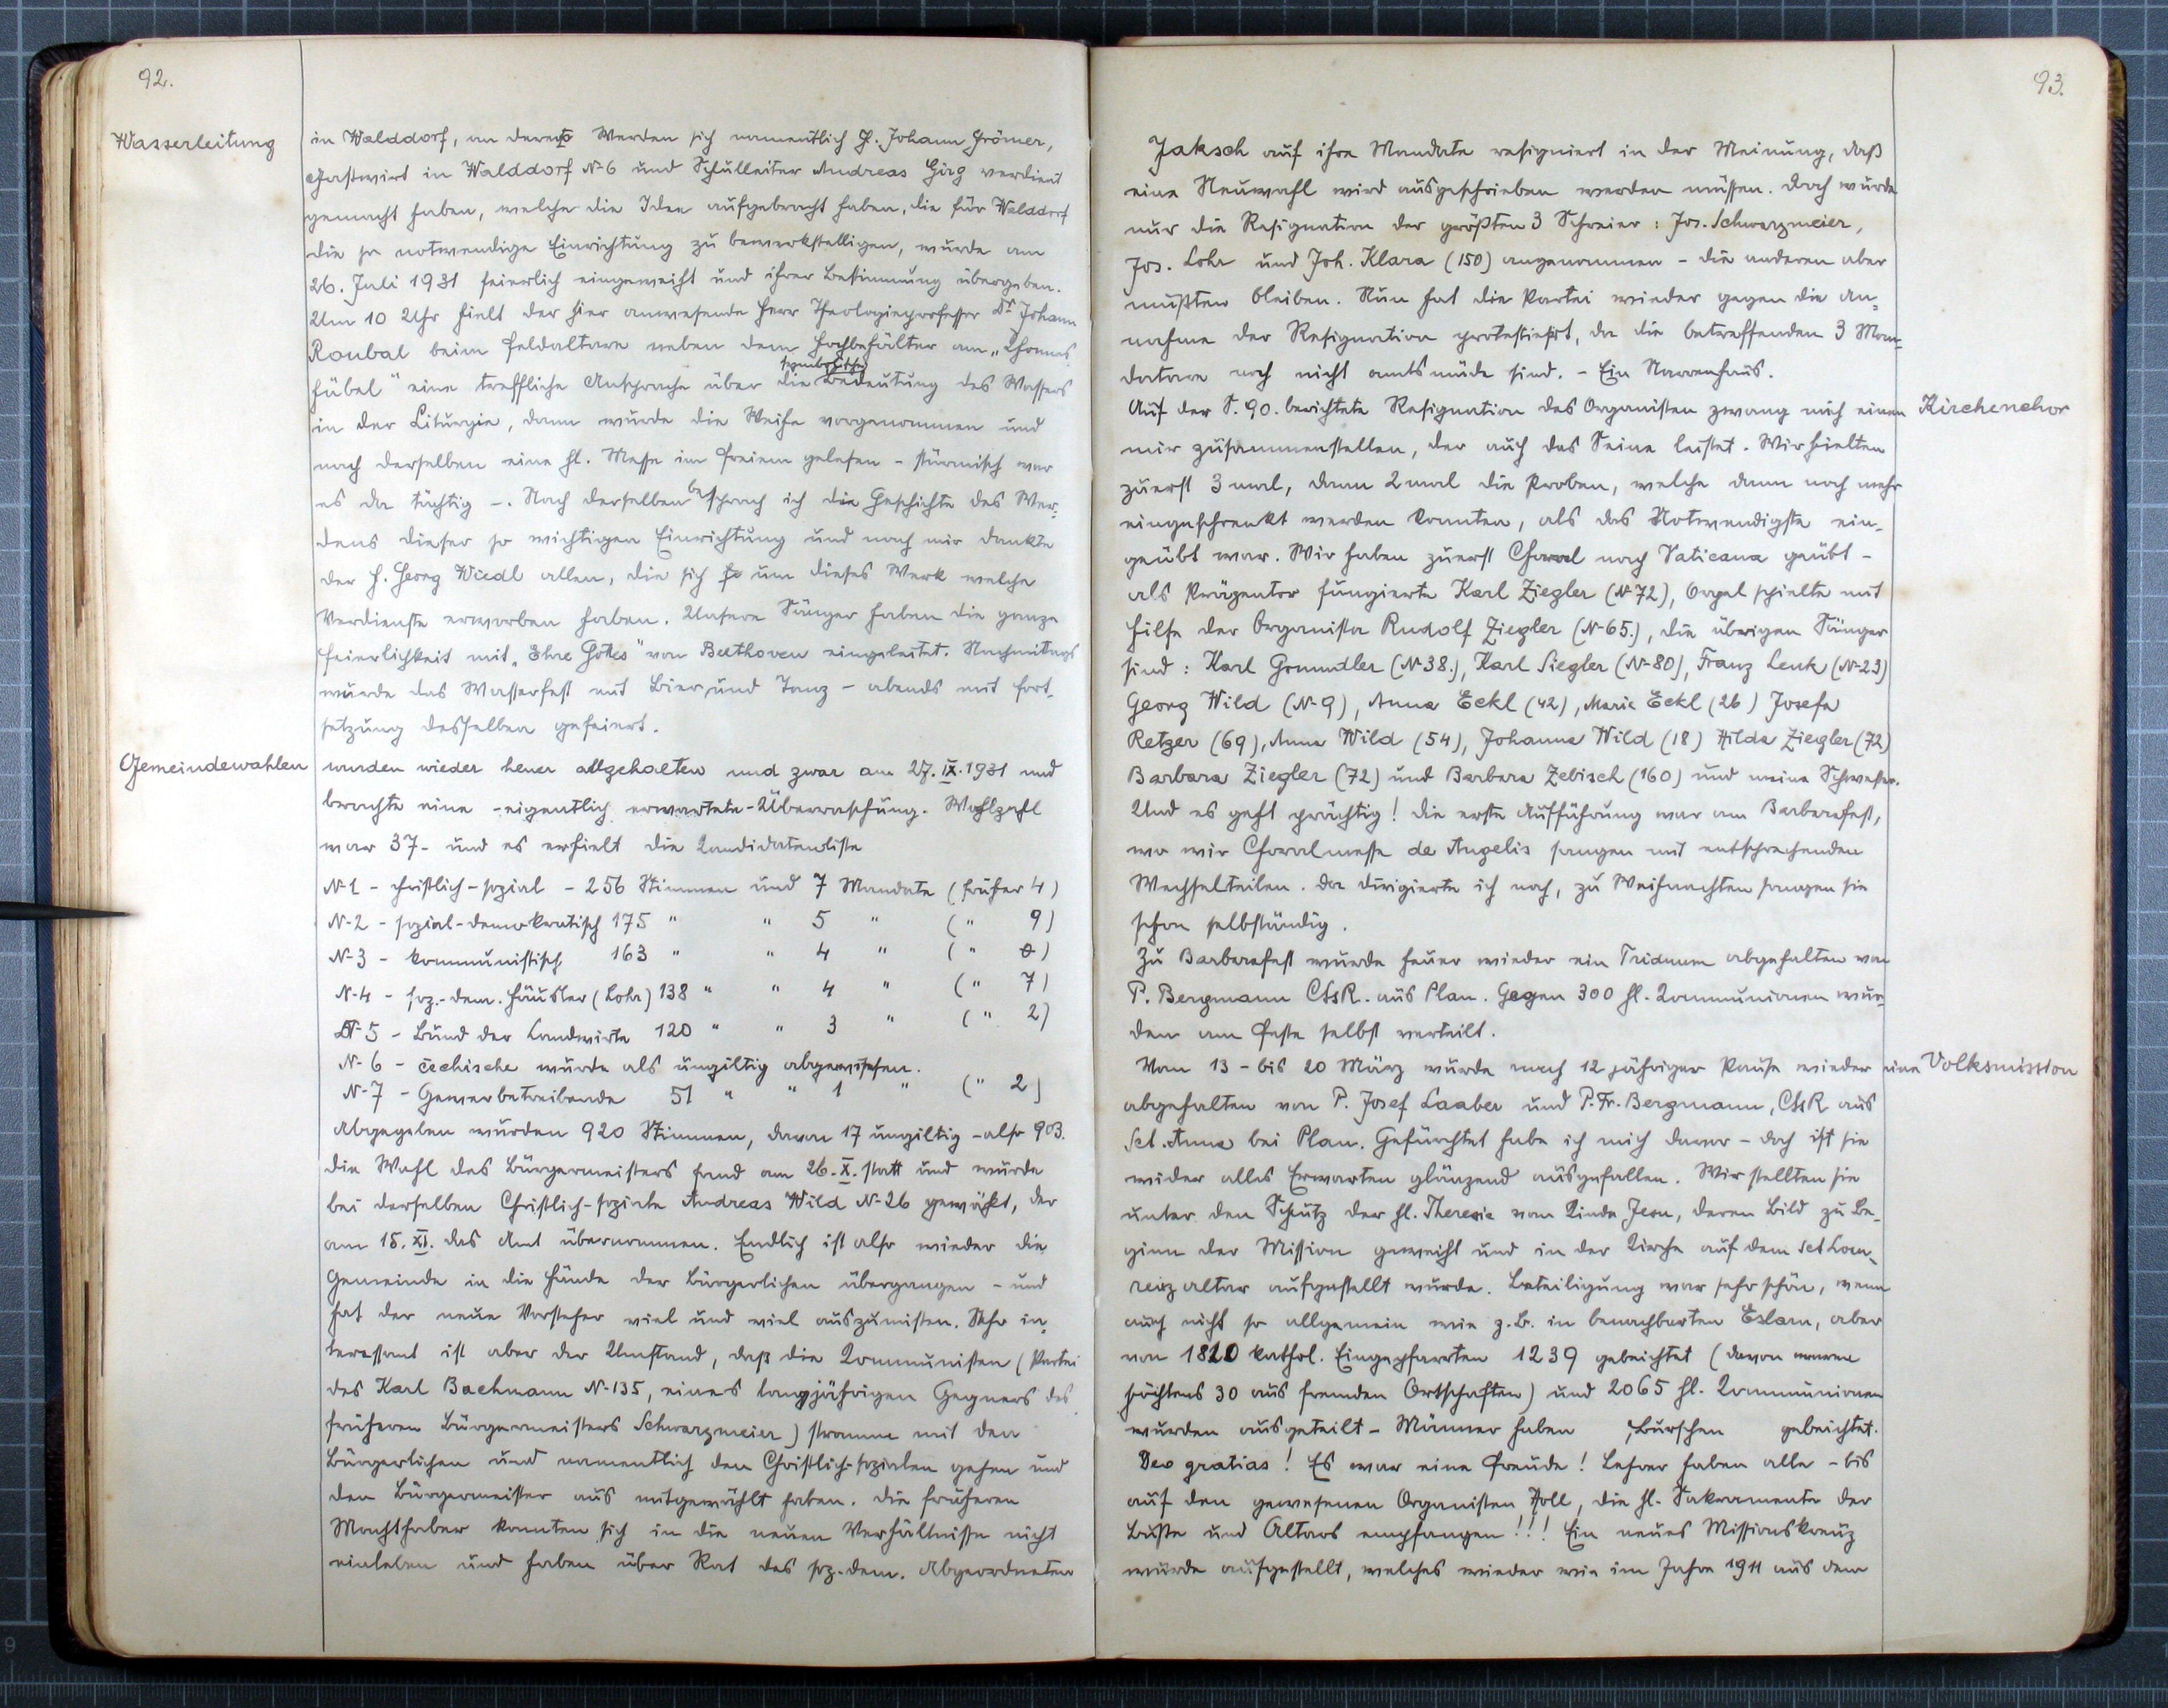 92.
Wasserleitung
in Walddorf, um deren Werden sich namentlich H. Johann Grömer,
Gastwirt in Walddorf N-6 und Schulleiter Andreas Girg verdient
gemacht haben, welche die Idee aufgebracht haben, die für Walddorf
die so notwendige Einrichtung zu bewerkstelligen, wurde am
26. Juli 1931 feierlich eingeweiht und ihrer Bestimmung übergeben.
Um 10 Uhr hielt der hier anwesende Herr Theologieprofessor Dr Johann
Roubal beim Feldaltare neben dem Hochbehälter am „Thomas
hübel" eine treffliche Ansprache über die symbolische Bedeutung des Wassers
in der Liturgie, dann wurde die Weihe vorgenommen und
nach derselben eine hl. Messe im Freien gelesen - stürmisch war
es da tüchtig -. Nach derselben besprach ich die Geschichte des Wer-
dens dieser so wichtigen Einrichtung und nach mir dankte
der H. Georg Wiedl allen, die sich um dieses Werk welche
Verdienste erworben haben. Unsere Sänger haben die ganze
Feierlichkeit mit „Ehre Gottes" von Beethoven eingeleitet. Nachmittags
wurde das Wasserfest mit Bier und Tanz - abends mit Fort-
setzung desselben gefeiert.
Gemeindewahlen
wurden wieder heuer abgehalten und zwar am 27. IX. 1931 und
brachte eine - eigentlich erwartete - Überraschung. Wahlzahl
war 37 - und es erhielt die Kandidatenliste
N-1 - christlich-sozial - 256 Stimmen und 7 Mandate (früher 4)
N-2 - sozial-demokratisch 175 " " 5 " (" 9)
N-3 - kommunistisch 163 " " 4 " (" 0)
N-4 - soz.-dem. Häusler (Lohr) 138 " " 4 " (" 7)
N-5 - Bund der Landwirte 120 " " 3 " (" 2)
N-6 - čechische wurde als ungiltig abgewiesen.
N-7 - Gewerbetreibende 51 " " 1 " (" 2)
Abgegeben wurden 920 Stimmen, davon 17 ungiltig - also 903.
Die Wahl des Bürgermeisters fand am 26. X. statt und wurde
bei derselben Christlich-soziale Andreas Wild N-26 gewählt, der
am 15. XI. das Amt übernommen. Endlich ist also wieder die
Gemeinde in die Hände der Bürgerlichen übergangen - und
hat der neue Vorsteher viel und viel auszumisten. Sehr in-
teressant ist aber der Umstand, daß die Kommunisten (Partei
des Karl Bachmann N-135, eines langjährigen Gegners des
früheren Bürgermeisters Schwarzmeier) stramm mit den
Bürgerlichen und namentlich den Christlich-sozialen gehen und
den Bürgermeister aus mitgewählt haben. Die früheren
Machthaber konnten sich in die neuen Verhältnisse nicht
einleben und haben über Rat des soz.-dem. Abgeordneten
93.
Jaksch auf ihre Mandate resigniert in der Meinung, daß
eine Neuwahl wird ausgeschrieben werden müssen. Doch wurde
nur die Resignation der größten 3 Schreier: Jos. Schwarzmeier,
Jos. Lohr und Joh. Klara (150) angenommen - die anderen aber
mußten bleiben. Nun hat die Partei wieder gegen die An-
nahme der Resignation protestiert, da die betreffenden 3 Man-
datare noch nicht amtsmüde sind. - Ein Narrenhaus.
Auf der S. 90. berichtete Resignation des Organisten zwang mich einen Kirchenchor
mir zusammenstellen, der auch das Seine leistet. Wir hielten
zuerst 3 mal, dann 2 mal die Proben, welche dann noch mehr
eingeschrenkt werden konnten, als das Notwendigste ein-
geübt war. Wir haben zuerst Choral nach Vaticana geübt -
als Präzentor fungierte Karl Ziegler (N-72), Orgel spielte mit
Hilfe der Organista Rudolf Ziegler (N-65.), die übrigen Sänger
sind: Karl Grundler (N-38.), Karl Siegler (N-80), Franz Lenk (N-23)
Georg Wild (N-9), Anna Eckl (42), Marie Eckl (26) Josefa
Retzer (69), Anna Wild (54), Johanna Wild (18) Hilda Ziegler (72)
Barbara Ziegler (72) und Barbara Zebisch (160) und meine Schwester.
Und es geht prächtig! Die erste Aufführung war am Barbarafest,
wo wir Choralmesse de Angelis sangen mit entsprechenden
Wechselteilen. Da dirigierte ich noch, zu Weihnachten sangen sie
schon selbständig.
Zu Barbarafest wurde heuer wieder ein Triduum abgehalten von
P. Bergmann CSsR. aus Plan. Gegen 300 hl. Kommunionen wur-
den am Feste selbst verteilt.
Vom 13 - bis 20 März wurde nach 12 jähriger Pause wieder eine Volksmission
abgehalten von P. Josef Laaber und P. Fr. Bergmann, CSsR aus
Sct. Anna bei Plan. Gefürchtet habe ich mich davor - doch ist sie
wider alles Erwarten glänzend ausgefallen. Wir stellten sie
unter den Schutz der hl. Theresie vom Kinde Jesu, deren Bild zu Be-
ginn der Mission geweiht und in der Kirche auf dem Sct Lau-
renz altar aufgestellt wurde. Beteiligung war sehr schön, wenn
auch nicht so allgemein wie z. B. in benachbarten Eslarn, aber
von 1820 kathol. Eingepfarrten 1239 gebeichtet (davon waren
höchstens 30 aus fremden Ortschaften) und 2065 hl. Kommunionen
wurden ausgeteilt - Männer haben , Burschen gebeichtet.
Deo gratias! Es war eine Freude! Lehrer haben alle - bis
auf den gewesenen Organisten Holl, die hl. Sakramente der
Buße und Altars empfangen!!! Ein neues Missionskreuz
wurde aufgestellt, welches wieder wie im Jahre 1911 aus dem